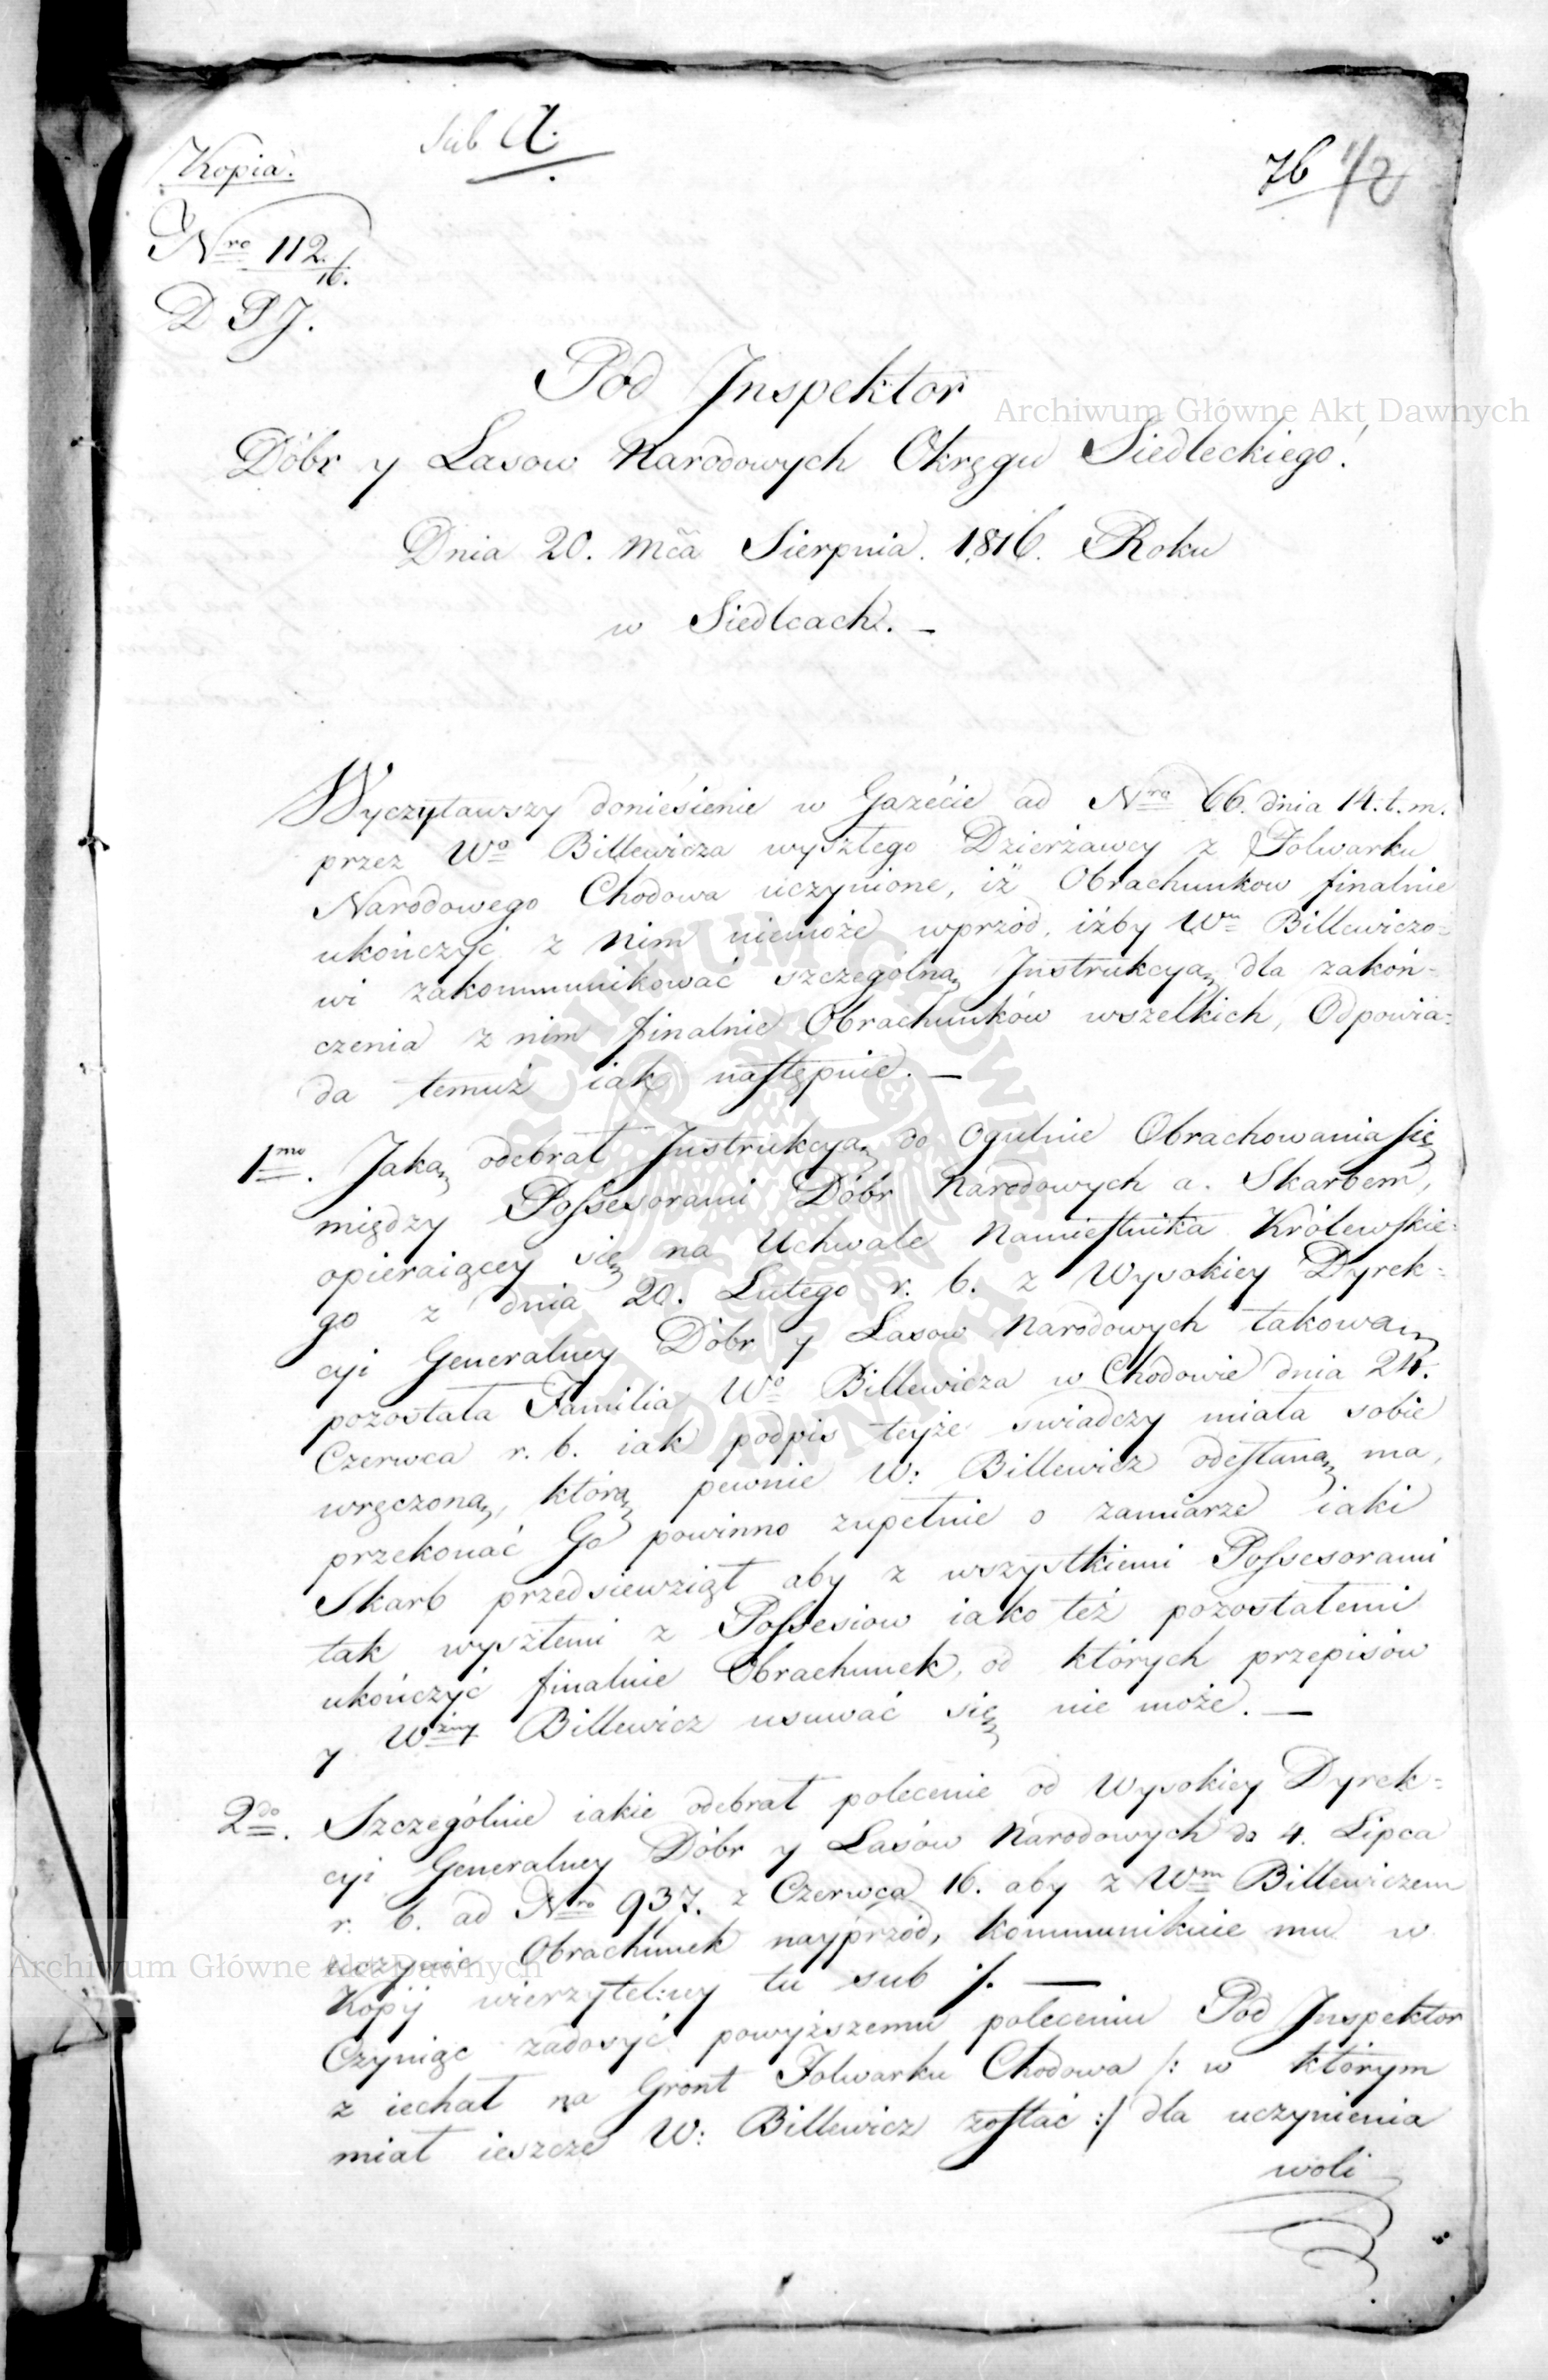 Sub A.
Kopia.
76 1/2
Nro 112.
16.
D P J.
Pod Inspektor
Archiwum Główne Akt Dawnych
Dóbr y Lasow Narodowych Okręgu Siedleckiego.
Dnia 20. Mca Sierpnia. 1816. Roku
w Siedlcach. —
Wyczytawszy doniesienie w Gazécie ad Nro 66. dnia 14. t. m.
przez Wo Billewicza wyszłego Dzierżawcy z Folwarku
Narodowego Chodowa uczynione, iż Obrachunkow finalnie
ukończyć z Nim niemoże wprzód, iżby Wu Billewiczo=
wi zakommunikować szczególną Instrukcyą dla zakoń=
czenia z nim finalnie Obrachunków wszelkich, Odpowia=
da temuż iak następnie. —
1mo. Jaką odebrał Instrukcyą do ogulnie Obrachowania się
między Possesorami Dóbr Narodowych a. Skarbem,
opieraiącey się na Uchwale Namiestnika Królewskie=
go z dnia 20. Lutego r. b. z Wysokiey Dyrek=
cyi Generalney Dóbr y Lasow Narodowych takową
pozostała Familia Wo Billewicza w Chodowie dnia 24.
Czerwca r. b. iak podpis teyże swiadczy miała sobie
wręczoną, którą pewnie W: Billewicz odesłaną ma,
przekonać Go powinno zupełnie o zamiarze iaki
Skarb przedsiewziął aby z wszystkiemi Possesorami
tak wyszłemi z Possesiow iako też pozostałemi
ukończyć finalnie Obrachunek, od których przepisów
y Wżny Billewicz usuwać się nie może. —
2do. Szczególnie iakie odebrał polecenie od Wysokiey Dyrek=
cyi Generalney Dóbr y Lasów Narodowych do 4. Lipca
r. b. ad Nro 937. z Czerwca 16. aby z Wm Billewiczem
uczynić Obrachunek nayprzód, kommunikuie mu w
Archiwum Główne Akt Dawnych
Kopij wierzytel:ney tu sub ·/. —
Czyniąc zadosyć powyższemu poleceniu Pod Inspektor
z iechał na Gront Folwarku Chodowa /: w którym
miał ieszcze W: Billewicz zostać :/ dla uczynienia
woli